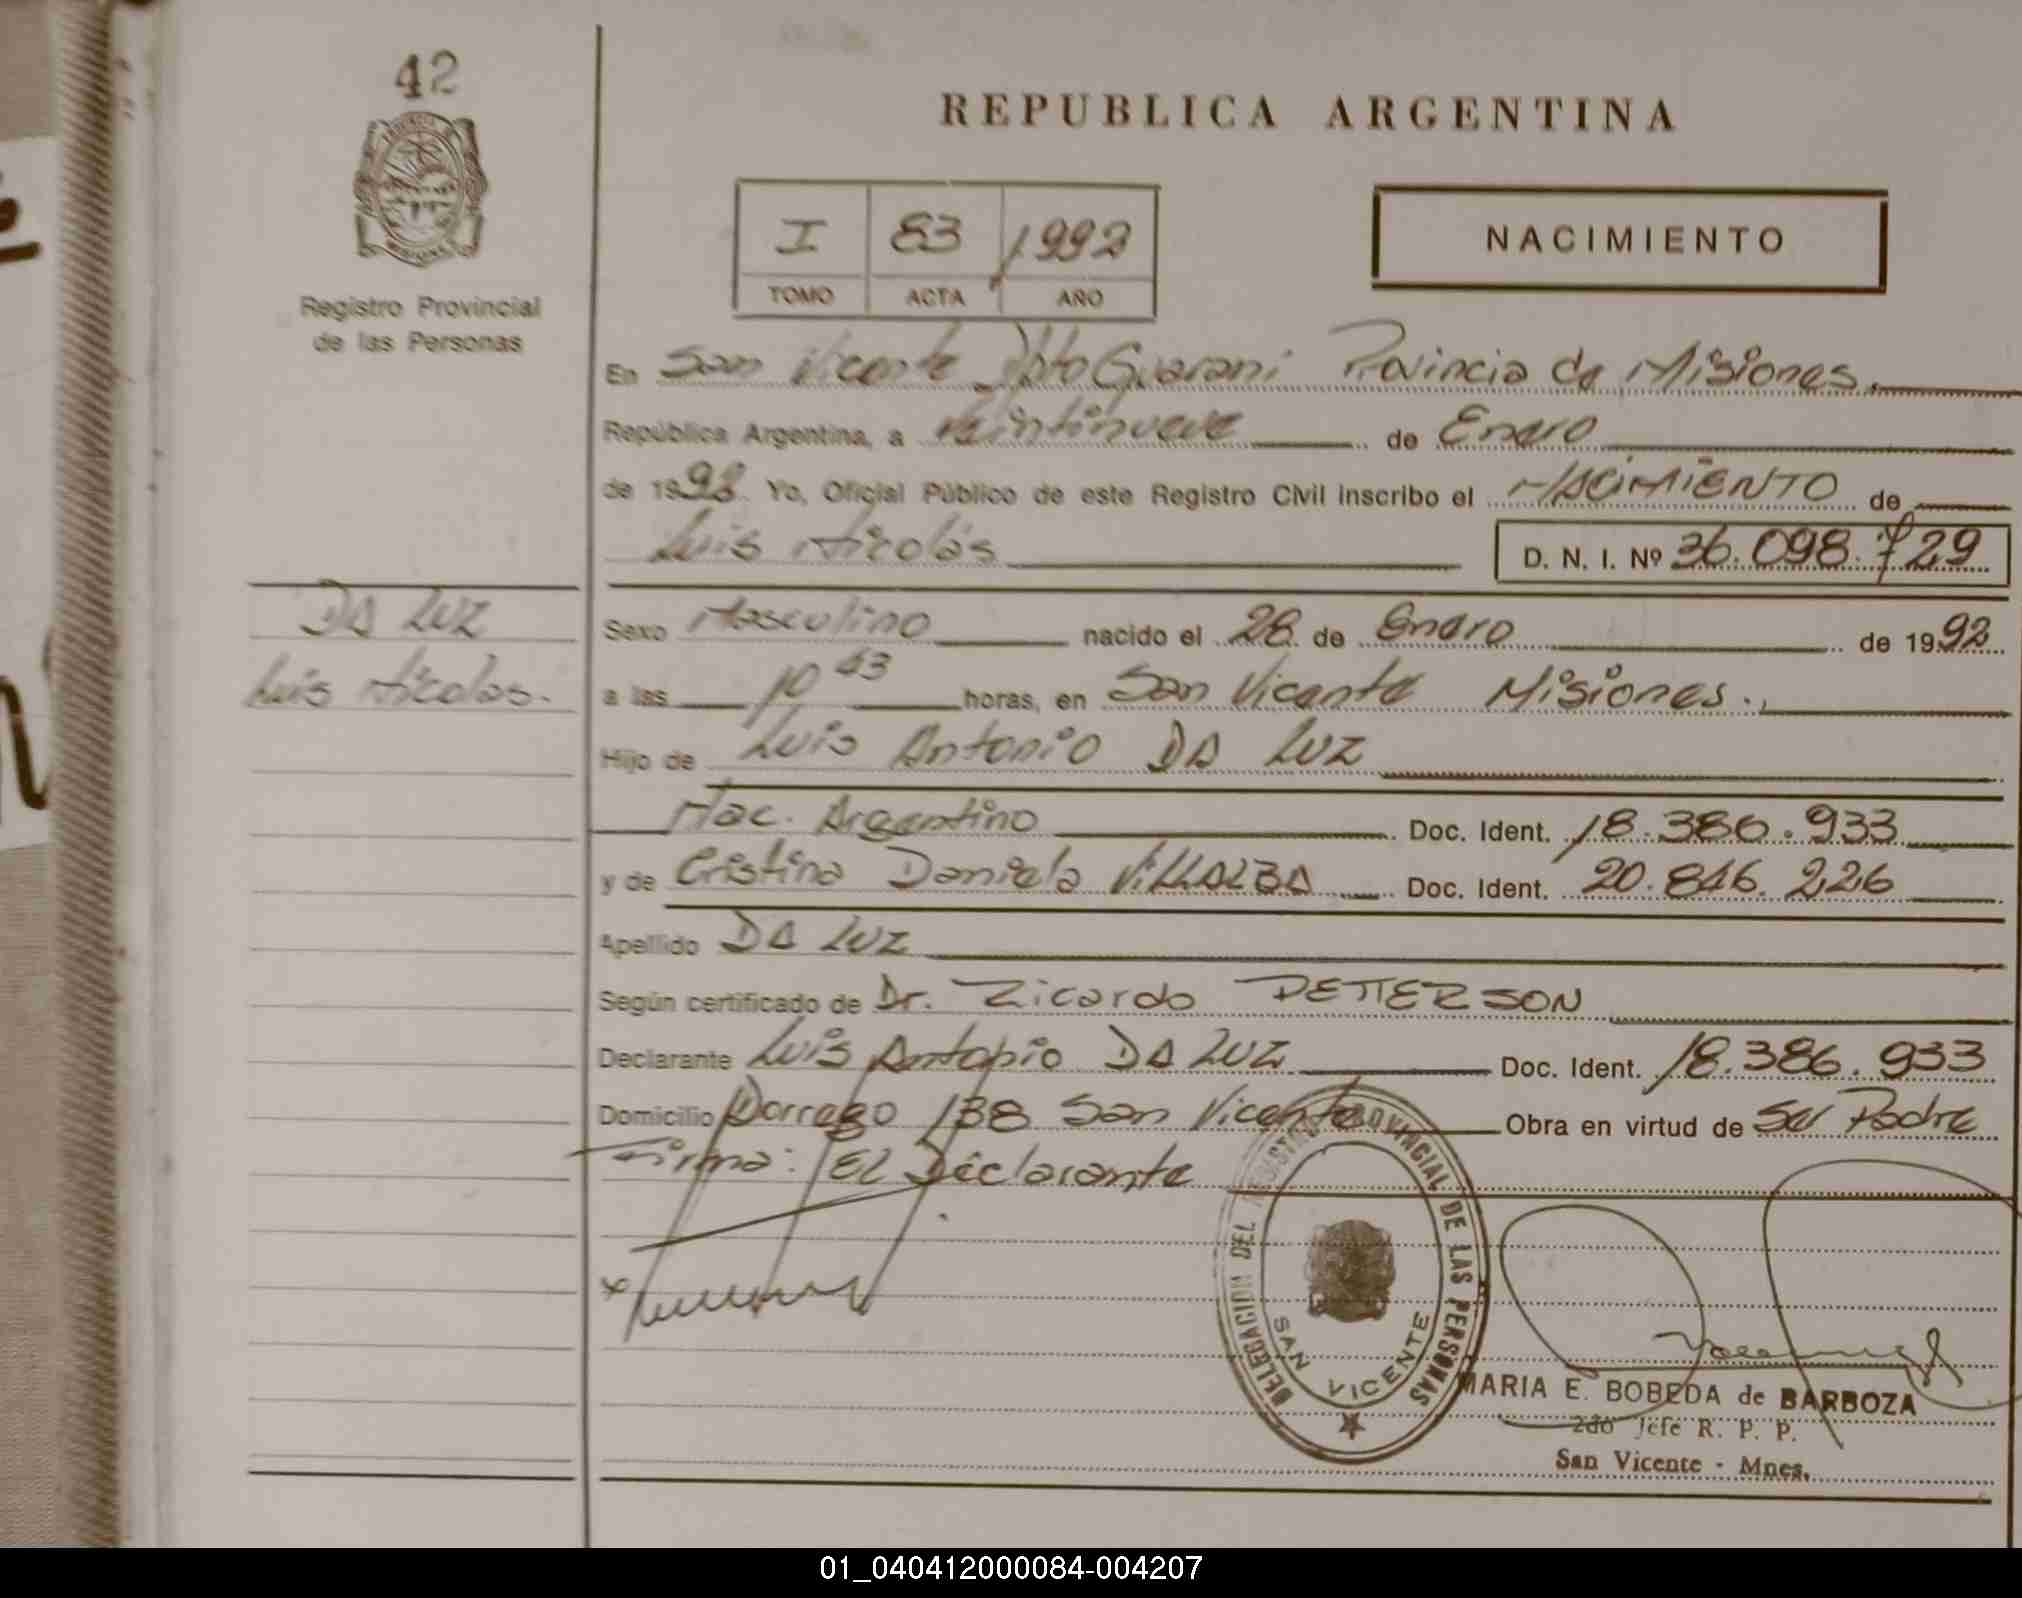 42
REPUBLICA ARGENTINA
PROVINCIA
MISIONES
Registro Provincial
de las Personas
I 83 1992
TOMO ACTA AÑO
NACIMIENTO
En San Vicente Dpto Guarani Provincia de Misiones.
República Argentina, a veintinueve de Enero
de 1992 Yo, Oficial Público de este Registro Civil inscribo el NACIMIENTO de
Luis Nicolás
D. N. I. Nº 36.098.729
DA LUZ
Luis Nicolas.
Sexo Masculino nacido el 28 de Enero de 1992
a las 10 43 horas, en San Vicente Misiones.
Hijo de Luis Antonio DA LUZ
Nac. Argentino Doc. Ident. 18.386.933
y de Cristina Daniela VILLALBA Doc. Ident. 20.846.226
Apellido DA LUZ
Según certificado de Dr. Ricardo PETTERSON
Declarante Luis Antonio DA LUZ Doc. Ident. 18.386.933
Domicilio Dorrego 138 San Vicente Obra en virtud de Ser Padre
Firma: El Declarante
DELEGACION DEL REGISTRO PROVINCIAL DE LAS PERSONAS
SAN VICENTE
MARIA E. BOBEDA de BARBOZA
2do Jefe R. P. P.
San Vicente - Mnes.
01_040412000084-004207